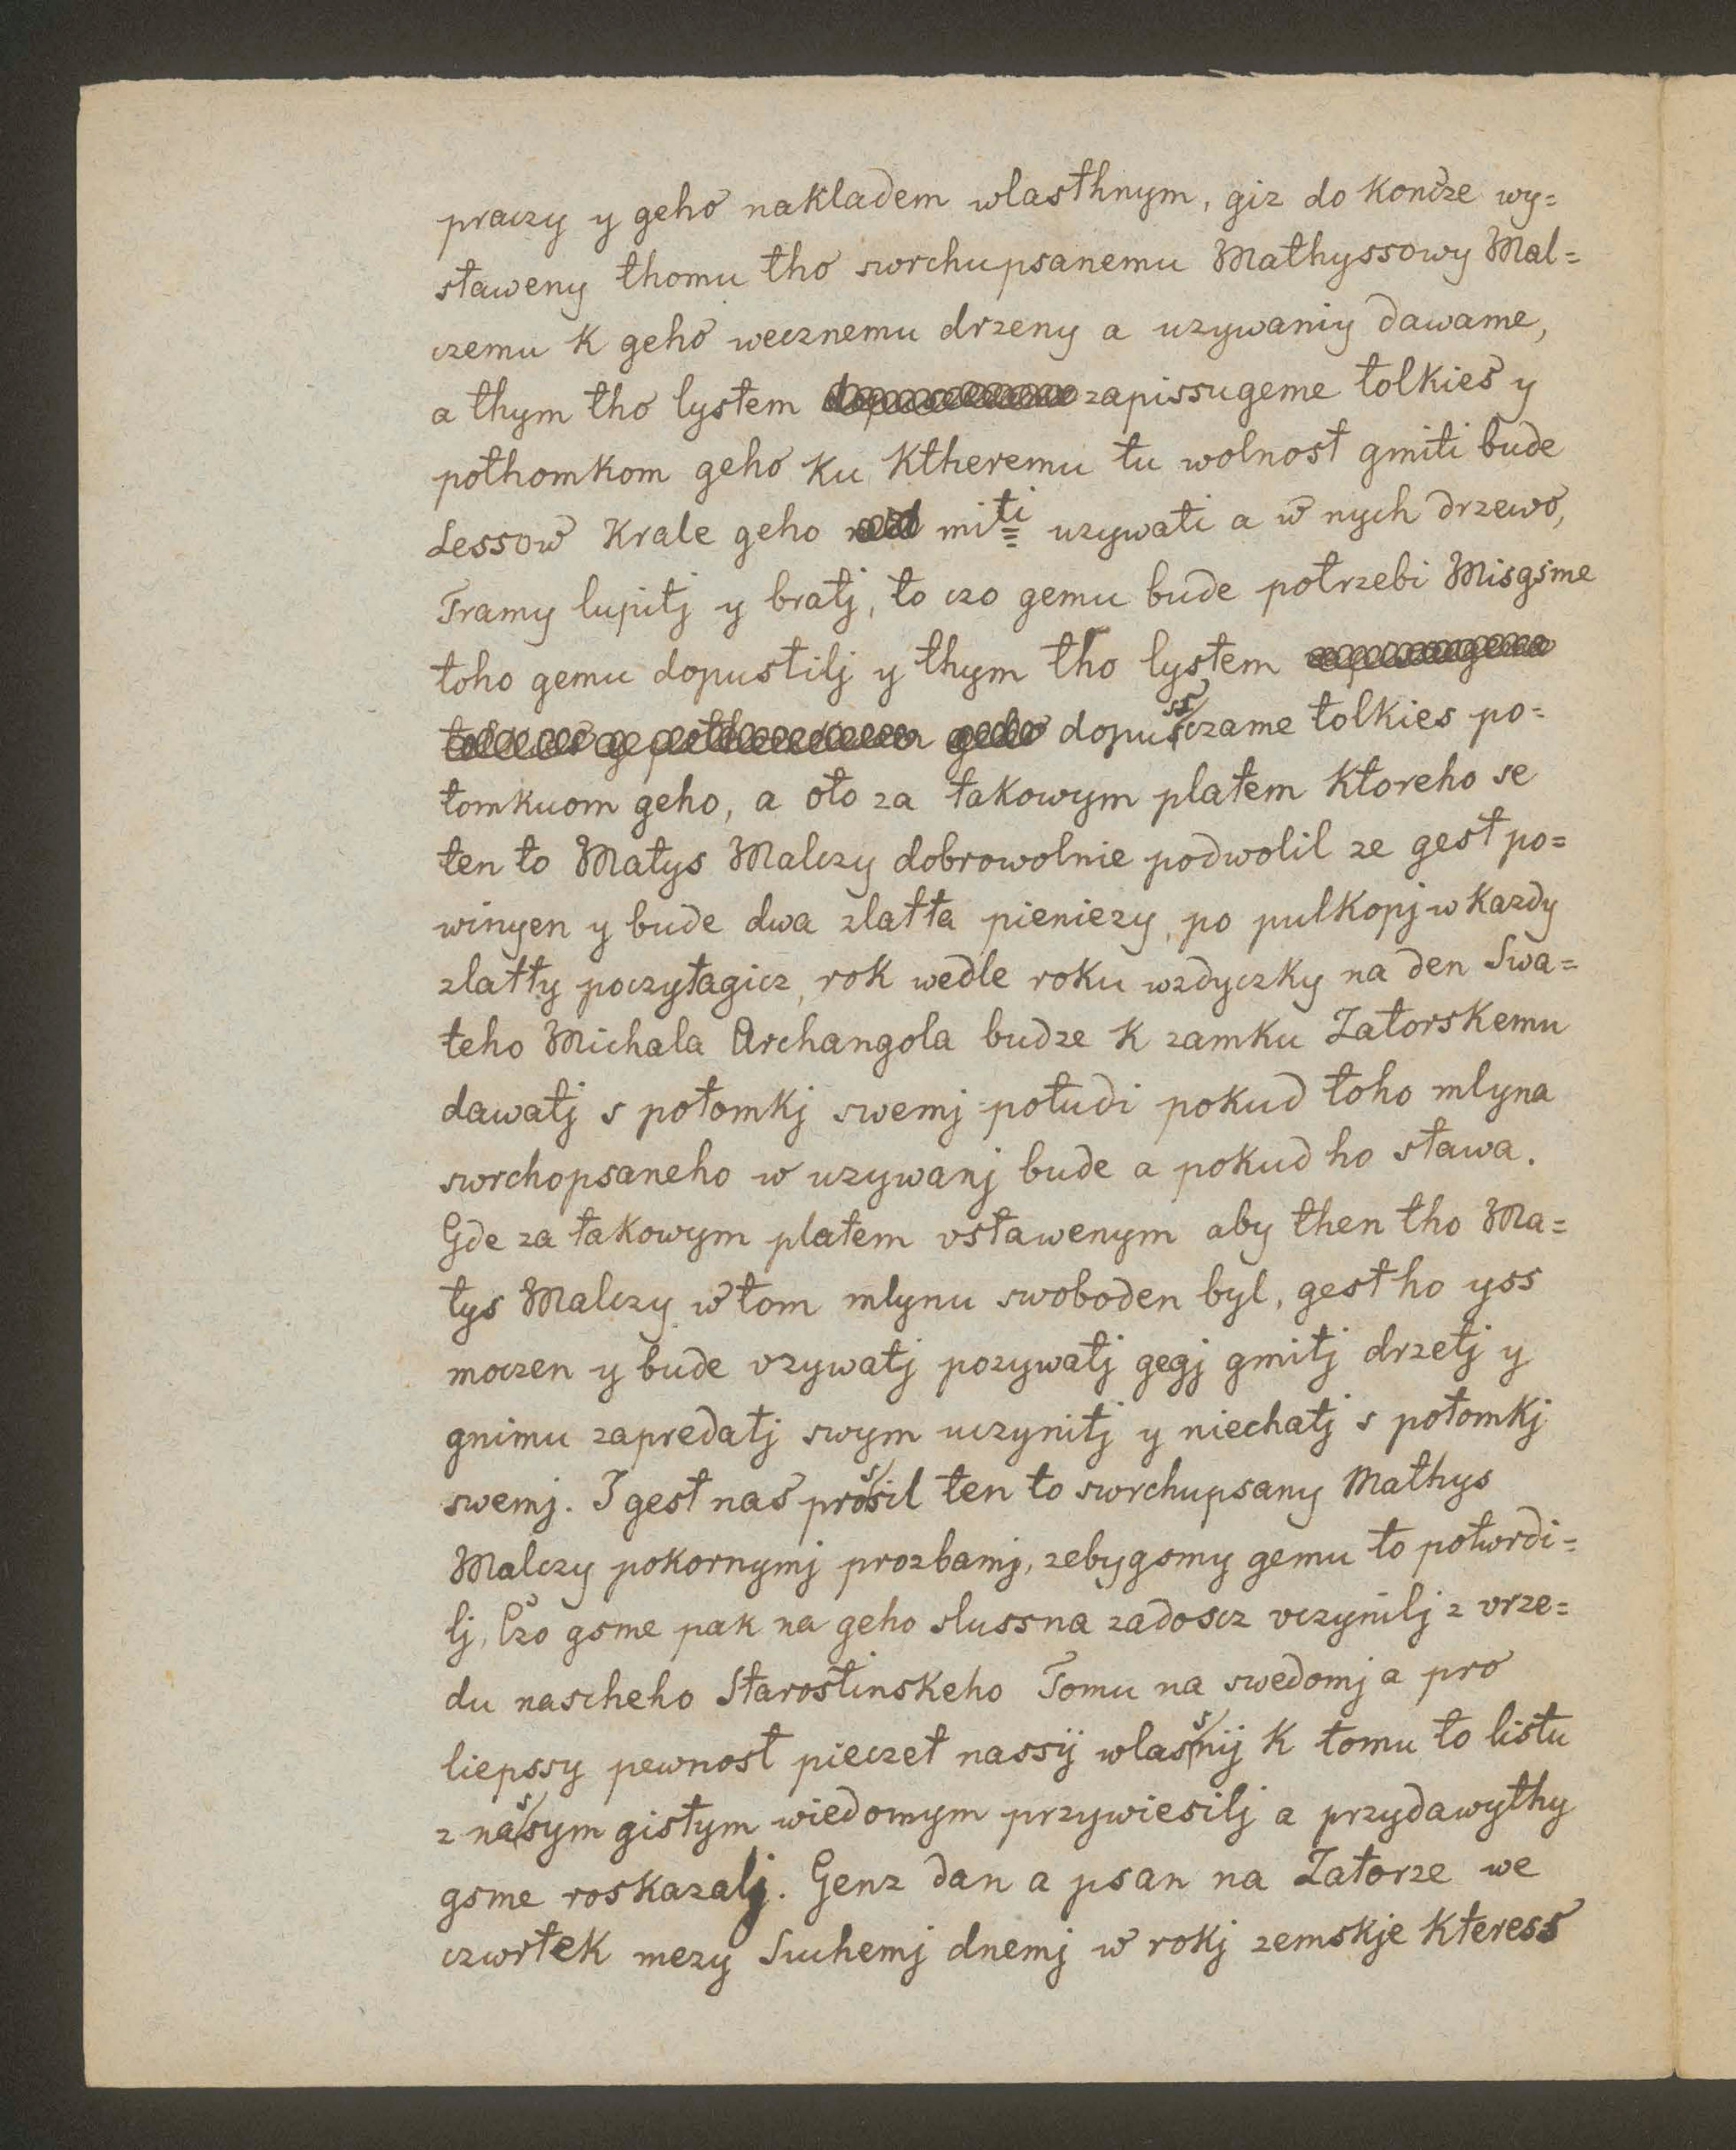 praczy y geho nakladem wlasthnym, giz do koncze wy=
staweny thomu tho swrchupsanemu Mathyssowy Mal=
czemu k geho wecznemu drzeny a uzywaniy dawame,
a thym tho lystem zapissugeme tolkies y
pothomkom geho ku ktheremu tu wolnost gmiti bude
Lessow Krale geho miti uzywati a w nych drzewo,
Tramy lupitj y bratj, to czo gemu bude potrzebi Misgsme
toho gemu dopustilj y thym tho lystem
dopussczame tolkies po=
tomkuom geho, a oto za takowym platem ktoreho se
ten to Matys Malczy dobrowolnie podwolil ze gest po=
winyen y bude dwa zlatta pieniezy, po pulkopj w kazdy
zlatty poczytagicz, rok wedle roku wzdyczky na den Swa=
teho Michala Archangola budze k zamku Zatorskemu
dawatj s potomkj swemj potudi pokud toho mlyna
swrchopsaneho w uzywanj bude a pokud ho stawa.
Gde za takowym platem vstawenym aby then tho Ma=
tys Malczy w tom mlynu swoboden byl, gest ho yss
moczen y bude vzywatj pozywatj gegj gmitj drzetj y
gnimu zapredatj swym uczynitj y niechatj s potomkj
swemj. I gest nas prosil ten to swrchupsany Mathys
Malczy pokornymj prozbamj, zebygsmy gemu to potwrdi=
lj, Czo gsme pak na geho slussna zadoscz vczynilj z vrze=
du nascheho Starostinskeho Tomu na swedomj a pro
liepssy pewnost pieczet nassÿ wlasnÿ k tomu to listu
z nasym gistym wiedomym przywiesilj a przydawythy
gsme roskazalj. Genz dan a psan na Zatorze we
czwrtek mezy Suchemj dnemj w rokj zemskje kteress